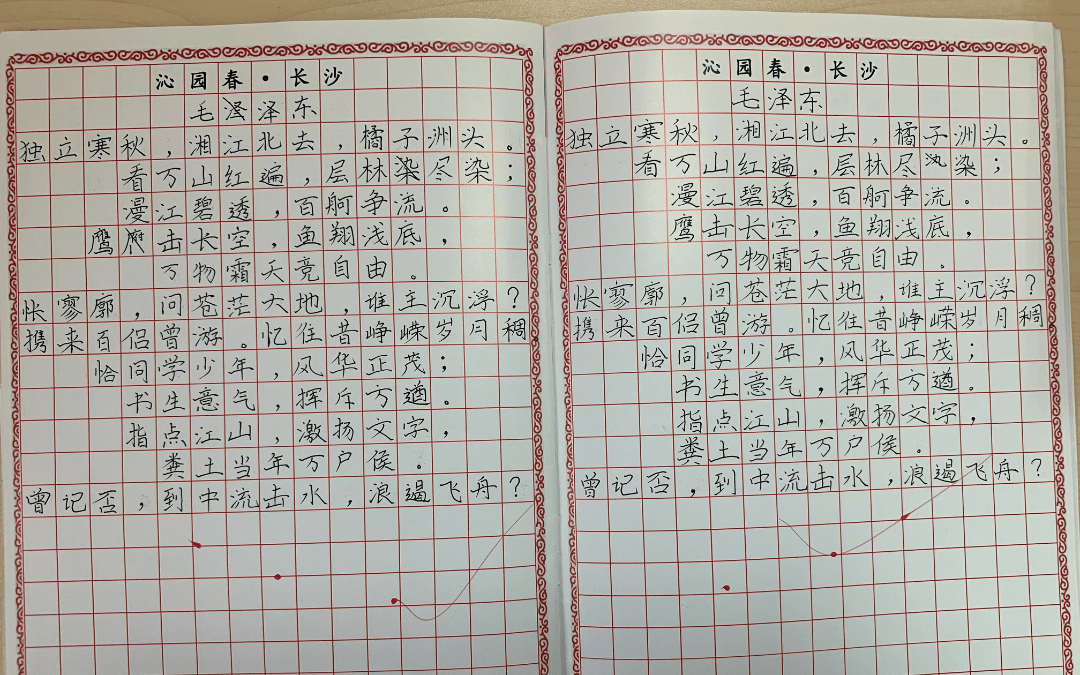 沁园春·长沙
毛泽东
独立寒秋，湘江北去，橘子洲头。
看万山红遍，层林染尽染；
漫江碧透，百舸争流。
鹰击长空，鱼翔浅底，
万物霜天竞自由。
怅寥廓，问苍茫大地，谁主沉浮？
携来百侣曾游。忆往昔峥嵘岁月稠
恰同学少年，风华正茂；
书生意气，挥斥方遒。
指点江山，激扬文字，
粪土当年万户侯。
曾记否，到中流击水，浪遏飞舟？
沁园春·长沙
毛泽东
独立寒秋，湘江北去，橘子洲头。
看万山红遍，层林尽染；
漫江碧透，百舸争流。
鹰击长空，鱼翔浅底，
万物霜天竞自由。
怅寥廓，问苍茫大地，谁主沉浮？
携来百侣曾游。忆往昔峥嵘岁月稠
恰同学少年，风华正茂；
书生意气，挥斥方遒。
指点江山，激扬文字，
粪土当年万户侯。
曾记否，到中流击水，浪遏飞舟？